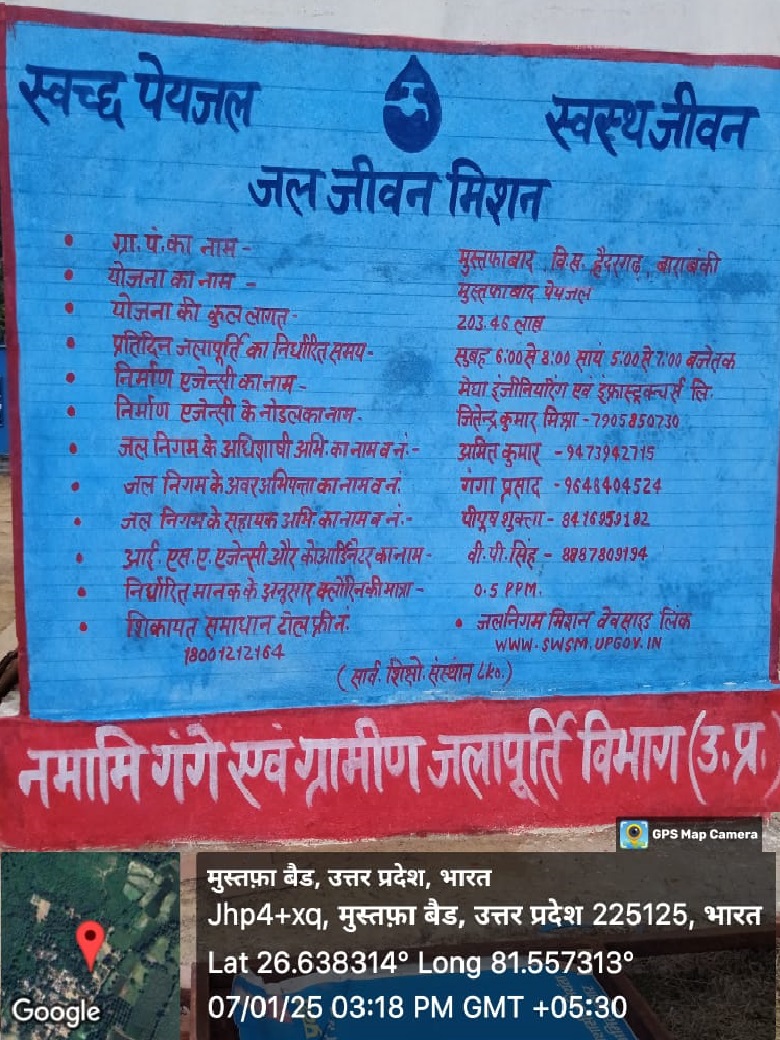 स्वच्छ पेयजल
स्वस्थ जीवन
जल जीवन मिशन
• ग्रा. पं. का नाम - मुस्तफाबाद, वि.स. हैदरगढ़, बाराबंकी
• योजना का नाम - मुस्तफाबाद पेयजल
• योजना की कुल लागत - 203.46 लाख
• प्रतिदिन जलापूर्ति का निर्धारित समय - सुबह 6:00 से 8:00 सायं 5:00 से 7:00 बजे तक
• निर्माण एजेन्सी का नाम - मेघा इंजीनियरिंग एवं इंफ्रास्ट्रक्चर्स लि.
• निर्माण एजेन्सी के नोडल का नाम - जितेन्द्र कुमार मिश्रा - 7905850730
• जल निगम के अधिशाषी अभि. का नाम व नं. - अमित कुमार - 9473942715
• जल निगम के अवर अभियन्ता का नाम व नं. गंगा प्रसाद - 9648404524
• जल निगम के सहायक अभि. का नाम व नं. - पीयूष शुक्ला - 8416959182
• आई. एस. ए. एजेन्सी और कोआर्डिनेटर का नाम - वी. पी. सिंह - 8887809194
• निर्धारित मानक के अनुसार क्लोरिन की मात्रा - 0.5 PPM.
• शिकायत समाधान टोल फ्री नं. • जलनिगम मिशन वेवसाइड लिंक
18001212164 WWW.SWSM.UPGOV.IN
(सार्व. शिक्षो. संस्थान Lko.)
नमामि गंगे एवं ग्रामीण जलापूर्ति विभाग (उ.प्र.)
GPS Map Camera
मुस्तफ़ा बैड, उत्तर प्रदेश, भारत
Jhp4+xq, मुस्तफ़ा बैड, उत्तर प्रदेश 225125, भारत
Lat 26.638314° Long 81.557313°
07/01/25 03:18 PM GMT +05:30
Google